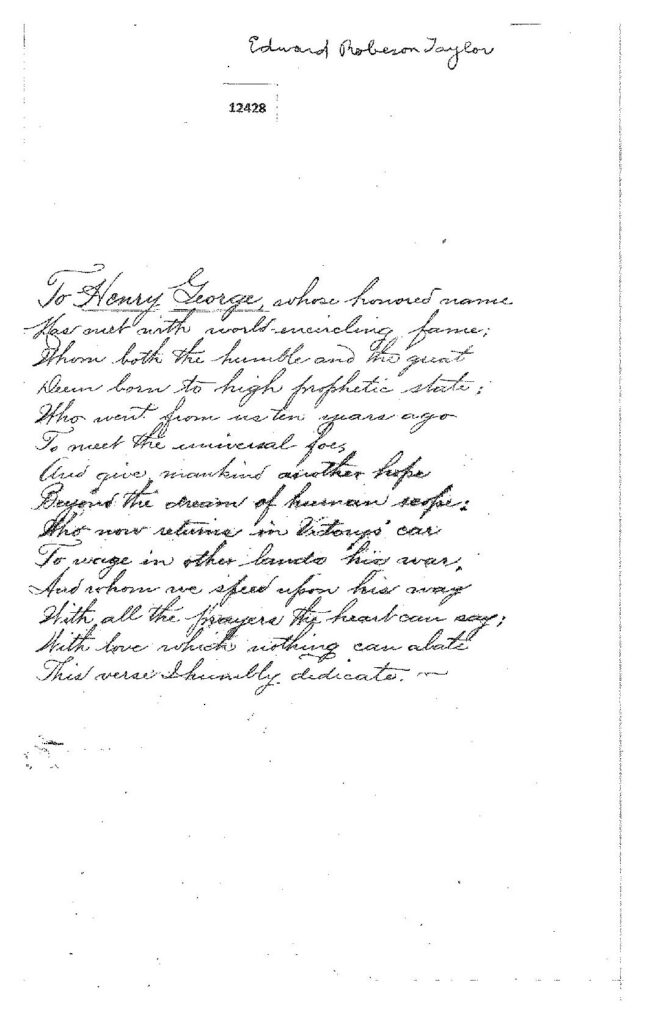 Edward Robeson Taylor
12428
To Henry George, whose honored name
Has met with world-encircling fame;
Whom both the humble and the great
Deem born to high prophetic state;
Who went from us ten years ago
To meet the universal foe,
And give mankind another hope
Beyond the dream of human scope;
Who now returns in Victory's car
To wage in other lands his war,
And whom we speed upon his way
With all the prayers the heart can say;
With love which nothing can abate
This verse I humbly dedicate. —